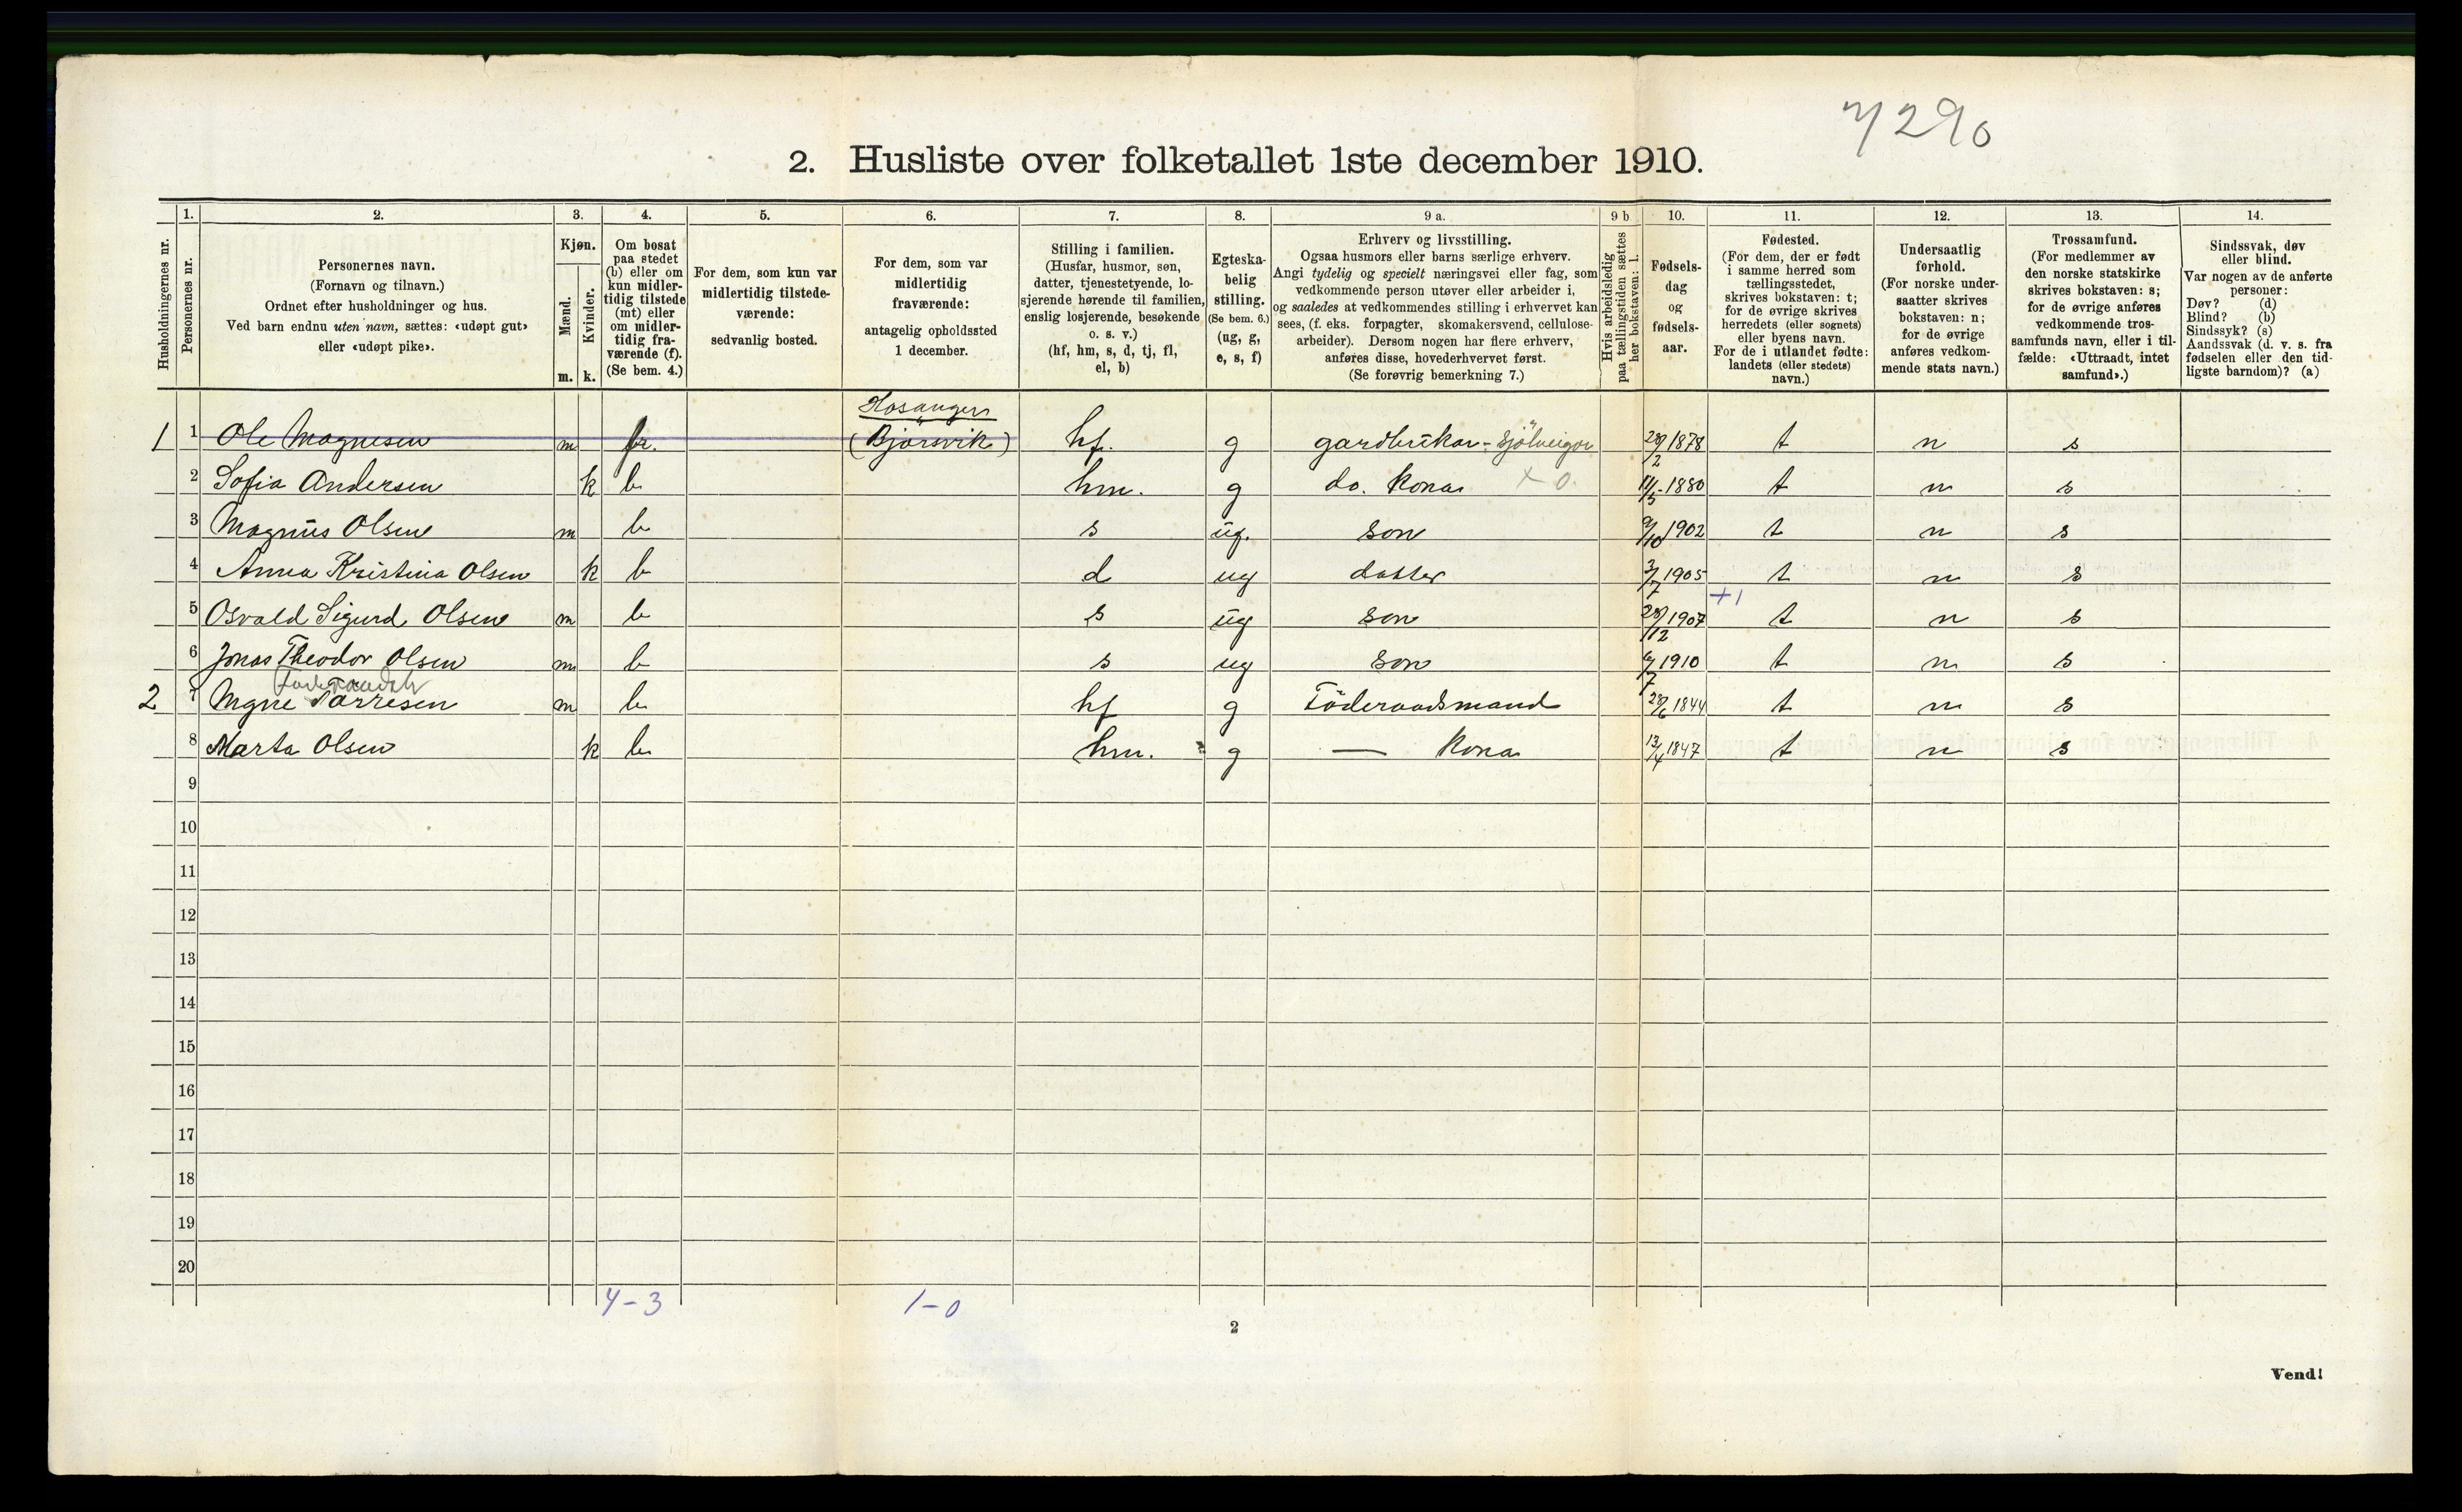 7290
2. Husliste over folketallet 1ste december 1910.
Husholdningernes nr.
1.
Personernes nr.
2.
Personernes navn.
(Fornavn og tilnavn.)
Ordnet efter husholdninger og hus.
Ved barn endnu uten navn, sættes: «udøpt gut»
eller «udøpt pike».
3.
Kjøn.
Mænd.
Kvinder.
m. k.
4.
Om bosat
paa stedet
(b) eller om
kun midler-
tidig tilstede
(mt) eller
om midler-
tidig fra-
værende (f).
(Se bem. 4.)
5.
For dem, som kun var
midlertidig tilstede-
værende:
sedvanlig bosted.
6.
For dem, som var
midlertidig
fraværende:
antagelig opholdssted
1 december.
7.
Stilling i familien.
(Husfar, husmor, søn,
datter, tjenestetyende, lo-
sjerende hørende til familien,
enslig losjerende, besøkende
o. s. v.)
(hf, hm, s, d, tj, fl,
el, b)
8.
Egteska-
belig
stilling.
(Se bem. 6.)
(ug, g,
e, s, f)
9 a.
Erhverv og livsstilling.
Ogsaa husmors eller barns særlige erhverv.
Angi tydelig og specielt næringsvei eller fag, som
vedkommende person utøver eller arbeider i,
og saaledes at vedkommendes stilling i erhvervet kan
sees, (f. eks. forpagter, skomakersvend, cellulose-
arbeider). Dersom nogen har flere erhverv,
anføres disse, hovederhvervet først.
(Se forøvrig bemerkning 7.)
9 b
Hvis arbeidsledig
paa tællingstiden sættes
her bokstaven: l.
10.
Fødsels-
dag
og
fødsels-
aar.
11.
Fødested.
(For dem, der er født
i samme herred som
tællingsstedet,
skrives bokstaven: t;
for de øvrige skrives
herredets (eller sognets)
eller byens navn.
For de i utlandet fødte:
landets (eller stedets)
navn.)
12.
Undersaatlig
forhold.
(For norske under-
saatter skrives
bokstaven: n;
for de øvrige
anføres vedkom-
mende stats navn.)
13.
Trossamfund.
(For medlemmer av
den norske statskirke
skrives bokstaven: s;
for de øvrige anføres
vedkommende tros-
samfunds navn, eller i til-
fælde: «Uttraadt, intet
samfund».)
14.
Sindssvak, døv
eller blind.
Var nogen av de anførte
personer:
Døv? (d)
Blind? (b)
Sindssyk? (s)
Aandssvak (d. v. s. fra
fødselen eller den tid-
ligste barndom)? (a)
Hosanger
1 1 Ole Magnesen m (Bjørsvik) hf. g gardbrukar - Sjölveigar 28/2 1878 t n s
2 Sofia Andersen k b hm. g do. Kona x 0. 11/5 - 1880 t n s
3 Magnus Olsen m b s ug. son 9/10 1902 t n s
4 Anna Kristina Olsen k b d ug dotter 3/7 1905 t n s
+1
5 Osvald Sigurd Olsen m b s ug son 28/12 1907 t n s
6 Jonas Theodor Olsen m b s ug son 6/7 1910 t n s
2 7 Mgne Tørresen m b hf g Föderaadsmand 28/6 1844 t n s
8 Marta Olsen k b hm. g — Kona 13/4 1847 t n s
9
10
11
12
13
14
15
16
17
18
19
20
4-3 1-0
2
Vend!